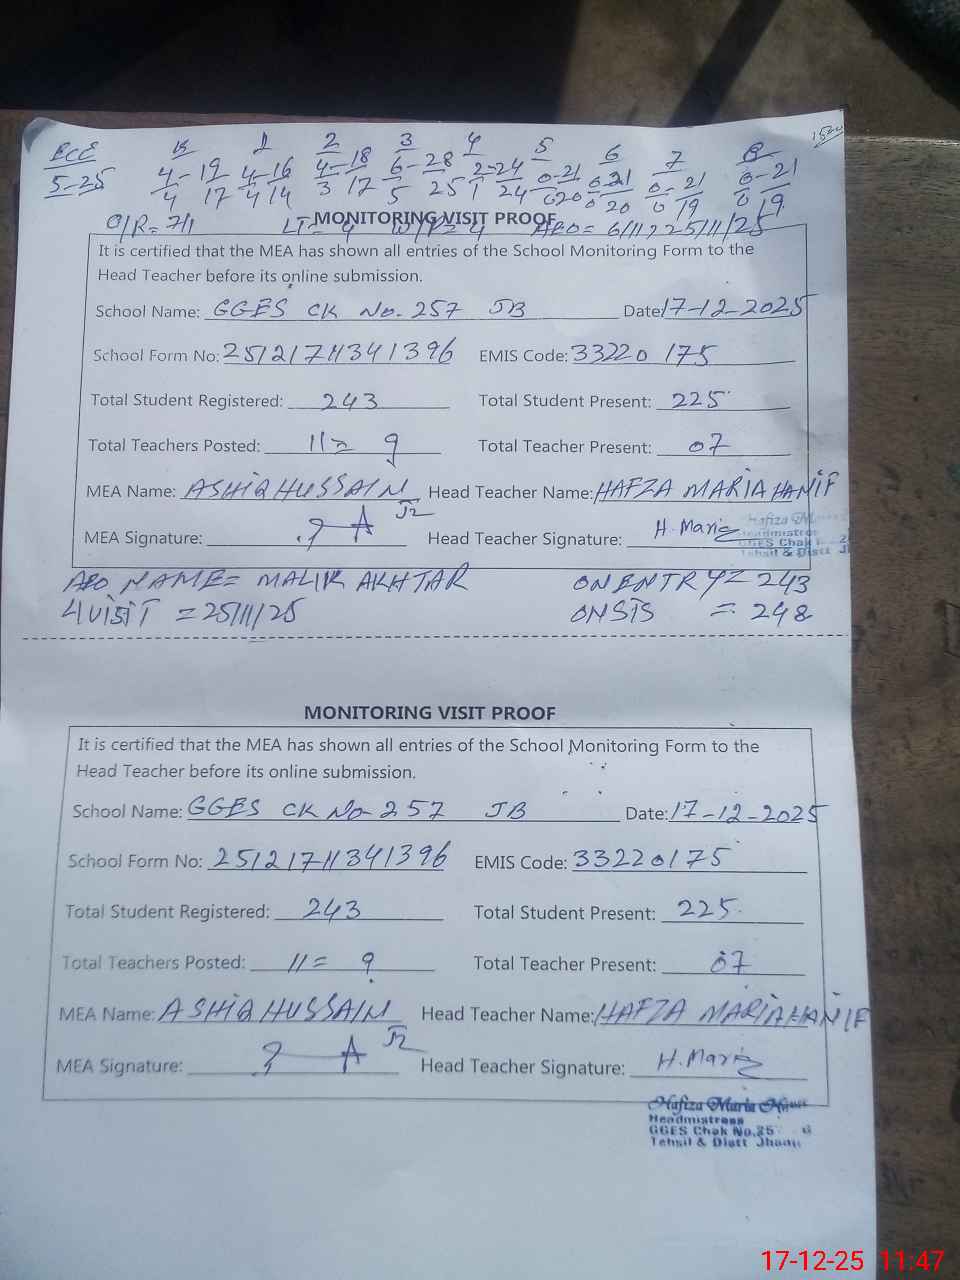 ECE K 1 2 3 4 5 6 7 8
5-25 4-19 4-16 4-18 6-28 2-24 0-21 0-21 0-21 0-21
4 17 4 14 3 17 5 25 1 24 0 20 0 20 0 19 0 19
O/R= 7/1 AEO= 6/11, 25/11/25
MONITORING VISIT PROOF
It is certified that the MEA has shown all entries of the School Monitoring Form to the
Head Teacher before its online submission.
School Name: GGES CK No. 257 JB Date: 17-12-2025
School Form No: 25121711341396 EMIS Code: 33220175
Total Student Registered: 243 Total Student Present: 225
Total Teachers Posted: 11= 9 Total Teacher Present: 07
MEA Name: ASHIQ HUSSAIN Head Teacher Name: HAFZA MARIA HANIF
MEA Signature: Head Teacher Signature: H. Maria
Hafiza
Headmistress
GGES Chak
Tehsil & Distt
AEO NAME= MALIK AKHTAR ON ENTRY= 243
4 VISIT = 25/11/25 ON SIS = 248
MONITORING VISIT PROOF
It is certified that the MEA has shown all entries of the School Monitoring Form to the
Head Teacher before its online submission.
School Name: GGES CK No 257 JB Date: 17-12-2025
School Form No: 25121711341396 EMIS Code: 33220175
Total Student Registered: 243 Total Student Present: 225
Total Teachers Posted: 11= 9 Total Teacher Present: 07
MEA Name: ASHIQ HUSSAIN Head Teacher Name: HAFZA MARIA HANIF
MEA Signature: Head Teacher Signature: H. Maria
Hafiza Maria
Headmistress
GGES Chak No.25
Tehsil & Distt Jhang
17-12-25 11:47